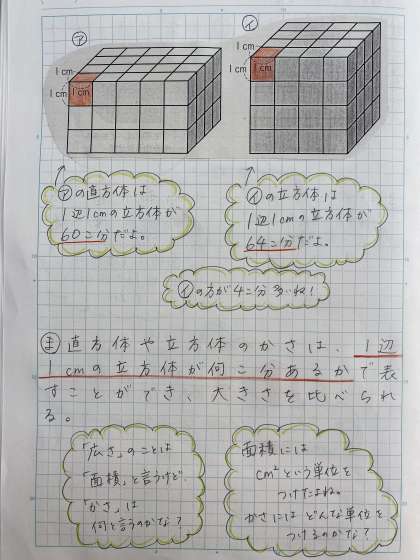 ア
イ
1cm
1cm
1cm
1cm
1cm
1cm
アの直方体は
1辺1cmの立方体が
60こ分だよ。
イの立方体は
1辺1cmの立方体が
64こ分だよ。
イの方が4こ分多いね!
ま 直方体や立方体のかさは、1辺
1cmの立方体が何こ分あるかで表
すことができ、大きさを比べられ
る。
「広さ」のことは
「面積」と言うけど、
「かさ」は
何と言うのかな?
面積には
cm²という単位を
つけたよね。
かさにはどんな単位を
つけるのかな?